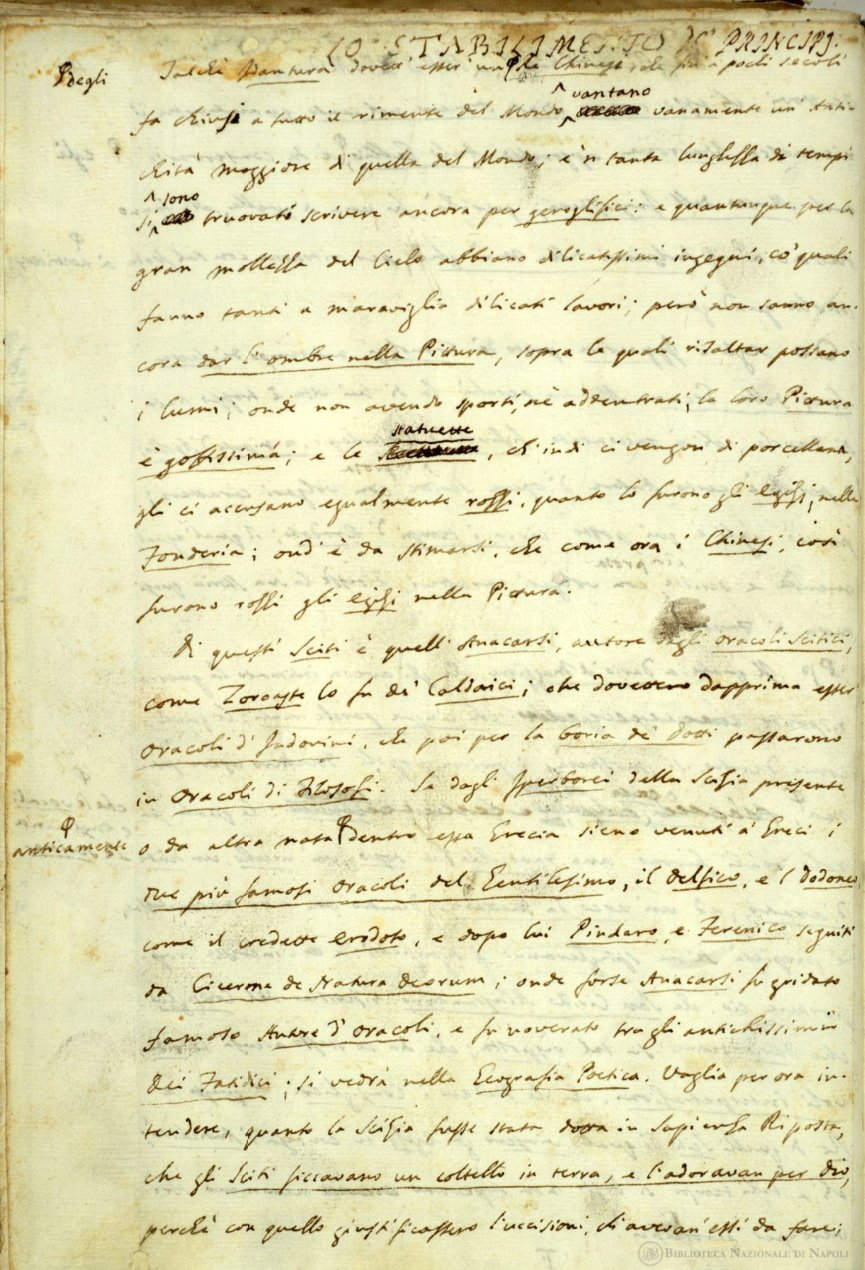 LO STABILIMENTO DE' PRINCIPJ.
degli
Talchè dovett' esser Chinesi, che fin a pochi secoli
fa chiusi a tutto il rimente del Mondo, vantano vanamente un' anti-
chità maggiore di quella del Mondo; e 'n tanta lunghezza di tempi
si sono truovati scrivere ancora per geroglifici: e quantunque per la
gran mollezza del Cielo abbiano dilicatissimi ingegni, co' quali
fanno tanti a maraviglia dilicati lavori; però non sanno an-
cora dar l' ombre nella Pittura, sopra le quali risaltar possano
i lumi; onde non avendo sporti, nè addentrati, la loro Pittura
è goffissima; e le statuette, ch' indi ci vengon di porcellana,
gli ci accusano egualmente rozzi, quanto lo furono gli Egizj nella
Fonderia; ond' è da stimarsi, che come ora i Chinesi, così
furono rozzi gli Egizj nella Pittura.
Di questi Sciti è quell' Anacarsi, autore degli oracoli Scitici,
come Zoroaste lo fu de' Caldaici; che dovettero dapprima esser
oracoli d' Indovini, che poi per la boria de' Dotti passarono
in oracoli di Filosofi. Se dagli Iperborei della Scizia presente
anticamente
o da altra nata dentro essa Grecia sieno venuti a' Greci i
due più famosi oracoli del Gentilesimo, il Delfico, e 'l Dodoneo,
come il credette Erodoto, e dopo lui Pindaro, e Ferenico seguiti
da Cicerone de Natura Deorum; onde forse Anacarsi fu gridato
famoso Autore d' oracoli, e fu noverato tra gli antichissimi
Dei Fatidici; si vedrà nella Geografia Poetica. Vaglia per ora in-
tendere, quanto la Scizia fusse stata dotta in Sapienza Riposta,
che gli Sciti ficcavano un coltello in terra, e l' adoravan per dio,
perchè con quello giustificassero l' uccisioni, ch' avevan' essi da fare;
BIBLIOTECA NAZIONALE DI NAPOLI